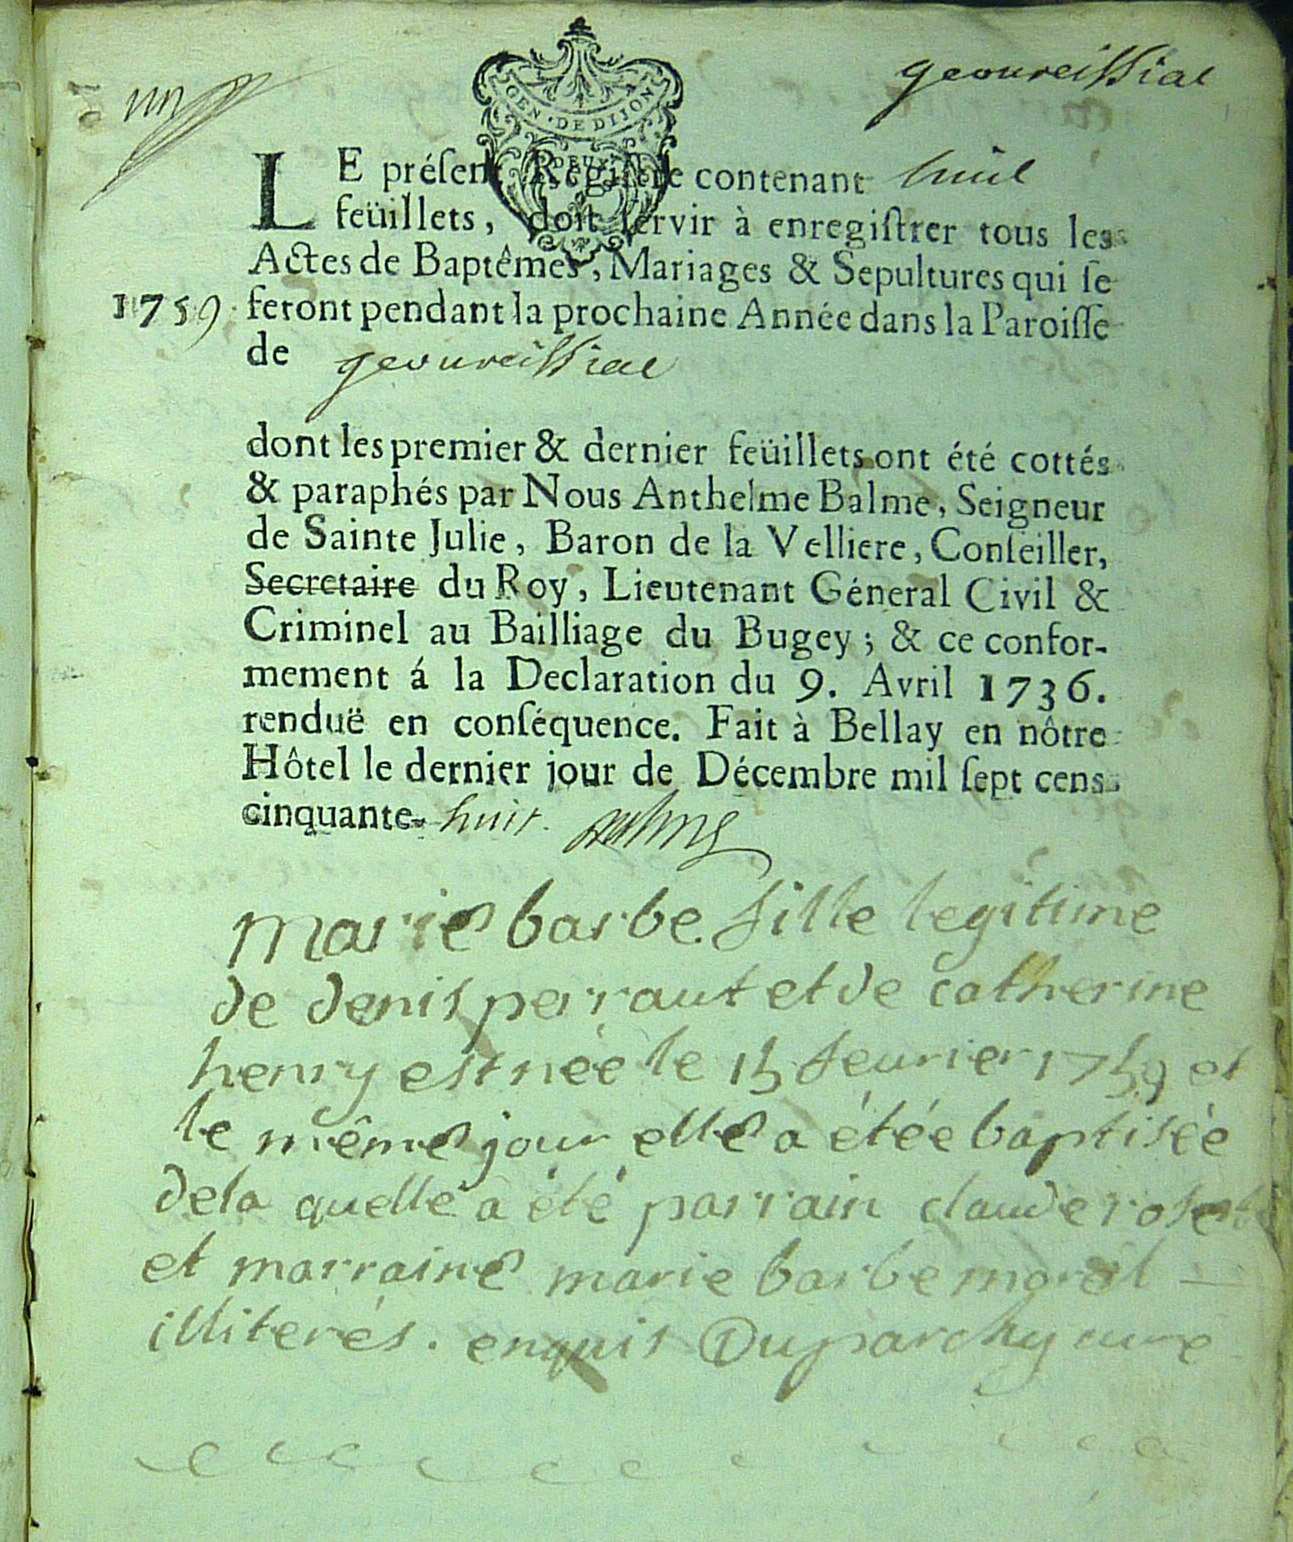 geoureissial
GEN · DE DIJON
LE préſent Regiſtre contenant huit
feüillets, doit ſervir à enregiſtrer tous les
Actes de Baptêmes, Mariages & Sepultures qui ſe
1759. feront pendant la prochaine Année dans la Paroiſſe
de geoureissial
dont les premier & dernier feüillets ont été cottés
& paraphés par Nous Anthelme Balme, Seigneur
de Sainte Julie, Baron de la Velliere, Conſeiller,
Secretaire du Roy, Lieutenant Géneral Civil &
Criminel au Bailliage du Bugey ; & ce confor-
mement á la Declaration du 9. Avril 1736.
renduë en conſéquence. Fait à Bellay en nôtre
Hôtel le dernier jour de Décembre mil ſept cens
cinquante- huit. Balme
marie barbe fille legitime
de denis perraut et de catherine
henry est née le 15 feurier 1759 et
le même jour elle a étée baptisée
dela quelle a été parrain claude
et marraine marie barbe morel
illiterés. enquis Duparchy curé